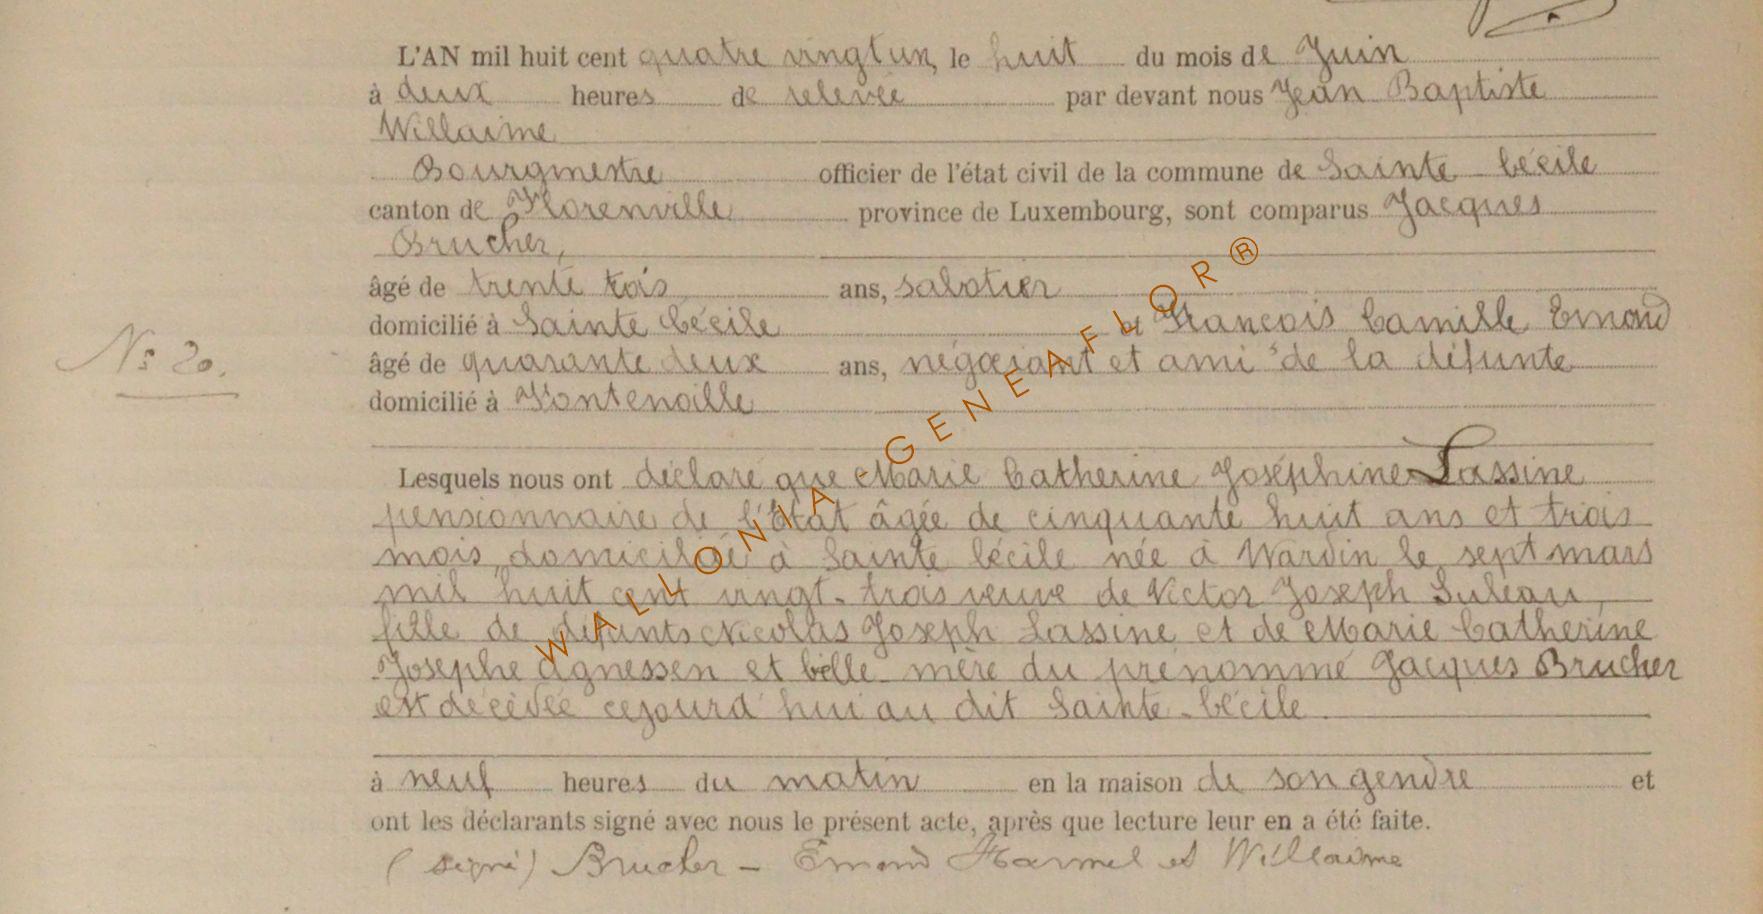 L'AN mil huit cent quatre vingt un, le huit du mois de Juin
à deux heures de relevée par devant nous Jean Baptiste
Willaime
Bourgmestre officier de l'état civil de la commune de Sainte Cécile
canton de Florenville province de Luxembourg, sont comparus Jacques
Brucher,
âgé de trente trois ans, sabotier
domicilié à Sainte Cécile et François Camille Emond
N° 20.
âgé de quarante deux ans, négociant et ami de la défunte
domicilié à Fontenoille
Lesquels nous ont déclaré que Marie Catherine Joséphine Lassine
pensionnaire de l'Etat âgée de cinquante huit ans et trois
mois, domiciliée à Sainte Cécile née à Wardin le sept mars
mil huit cent vingt-trois veuve de Victor Joseph Suleau,
fille de défunts Nicolas Joseph Lassine et de Marie Catherine
Josephe Agnessen et belle-mère du prénommé Jacques Brucher
est décédée cejourd'hui au dit Sainte-Cécile
à neuf heures du matin en la maison de son gendre et
ont les déclarants signé avec nous le présent acte, après que lecture leur en a été faite.
(signé) Brucher - Emond Harmel et Willaime
WALLONIA - GENEAFLOR®